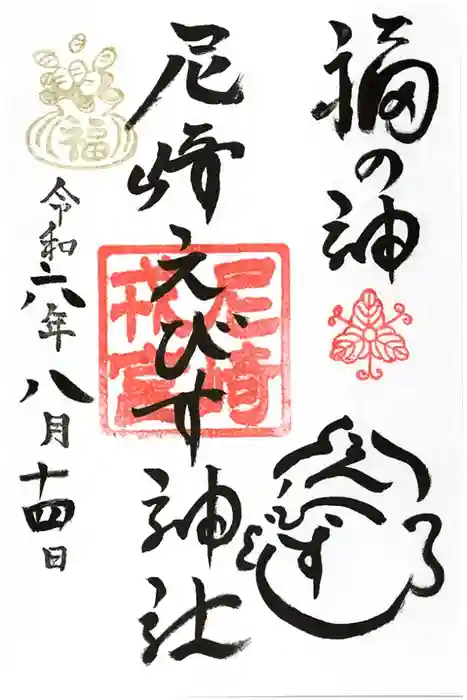 福の神
尼崎えびす神社
尼崎
戎宮
えびす
福
令和六年八月十四日